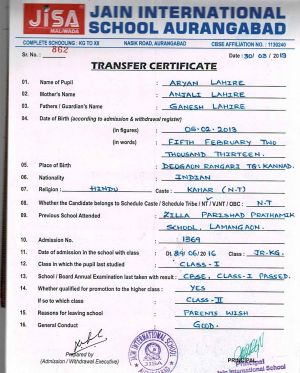 JISA
MALIWADA
JAIN INTERNATIONAL
SCHOOL AURANGABAD
COMPLETE SCHOOLING : KG TO XII NASIK ROAD, AURANGABAD CBSE AFFILIATION NO : 1130240
Sr. No : 862 Date : 30/03/2019
TRANSFER CERTIFICATE
01. Name of Pupil : ARYAN LAHIRE
02. Mother's Name : ANJALI LAHIRE
03. Fathers / Guardian's Name : GANESH LAHIRE
04. Date of Birth (according to admission & withdrawal register)
(in figures) : 05-02-2013
(in words) : FIFTH FEBRUARY TWO
THOUSAND THIRTEEN.
05. Place of Birth : DEOGAON RANGARI TQ: KANNAD.
06. Nationality : INDIAN
07. Religion : HINDU Caste : KAHAR (N-T)
08. Whether the Candidate belongs to Schedule Caste / Schedule Tribe / NT / VJNT / OBC : N-T
09. Previous School Attended : ZILLA PARISHAD PRATHAMIK
SCHOOL, LAMANGAON.
10. Admission No. : 1369
11. Date of admission in the school with class : Dt. /06/16 Class : JR-KG.
12. Class in which the pupil last studied : CLASS-I
13. School / Board Annual Examination last taken with result : CBSE, CLASS-I PASSED.
14. Whether qualified for promotion to the higher class : YES
If so to which class : CLASS-II
15. Reasons for leaving school : PARENTS WISH
16. General Conduct : GOOD.
Prepared by
(Admission / Withdrawal Executive)
JAIN INTERNATIONAL SCHOOL
PRINCIPAL
Principal
Jain International School